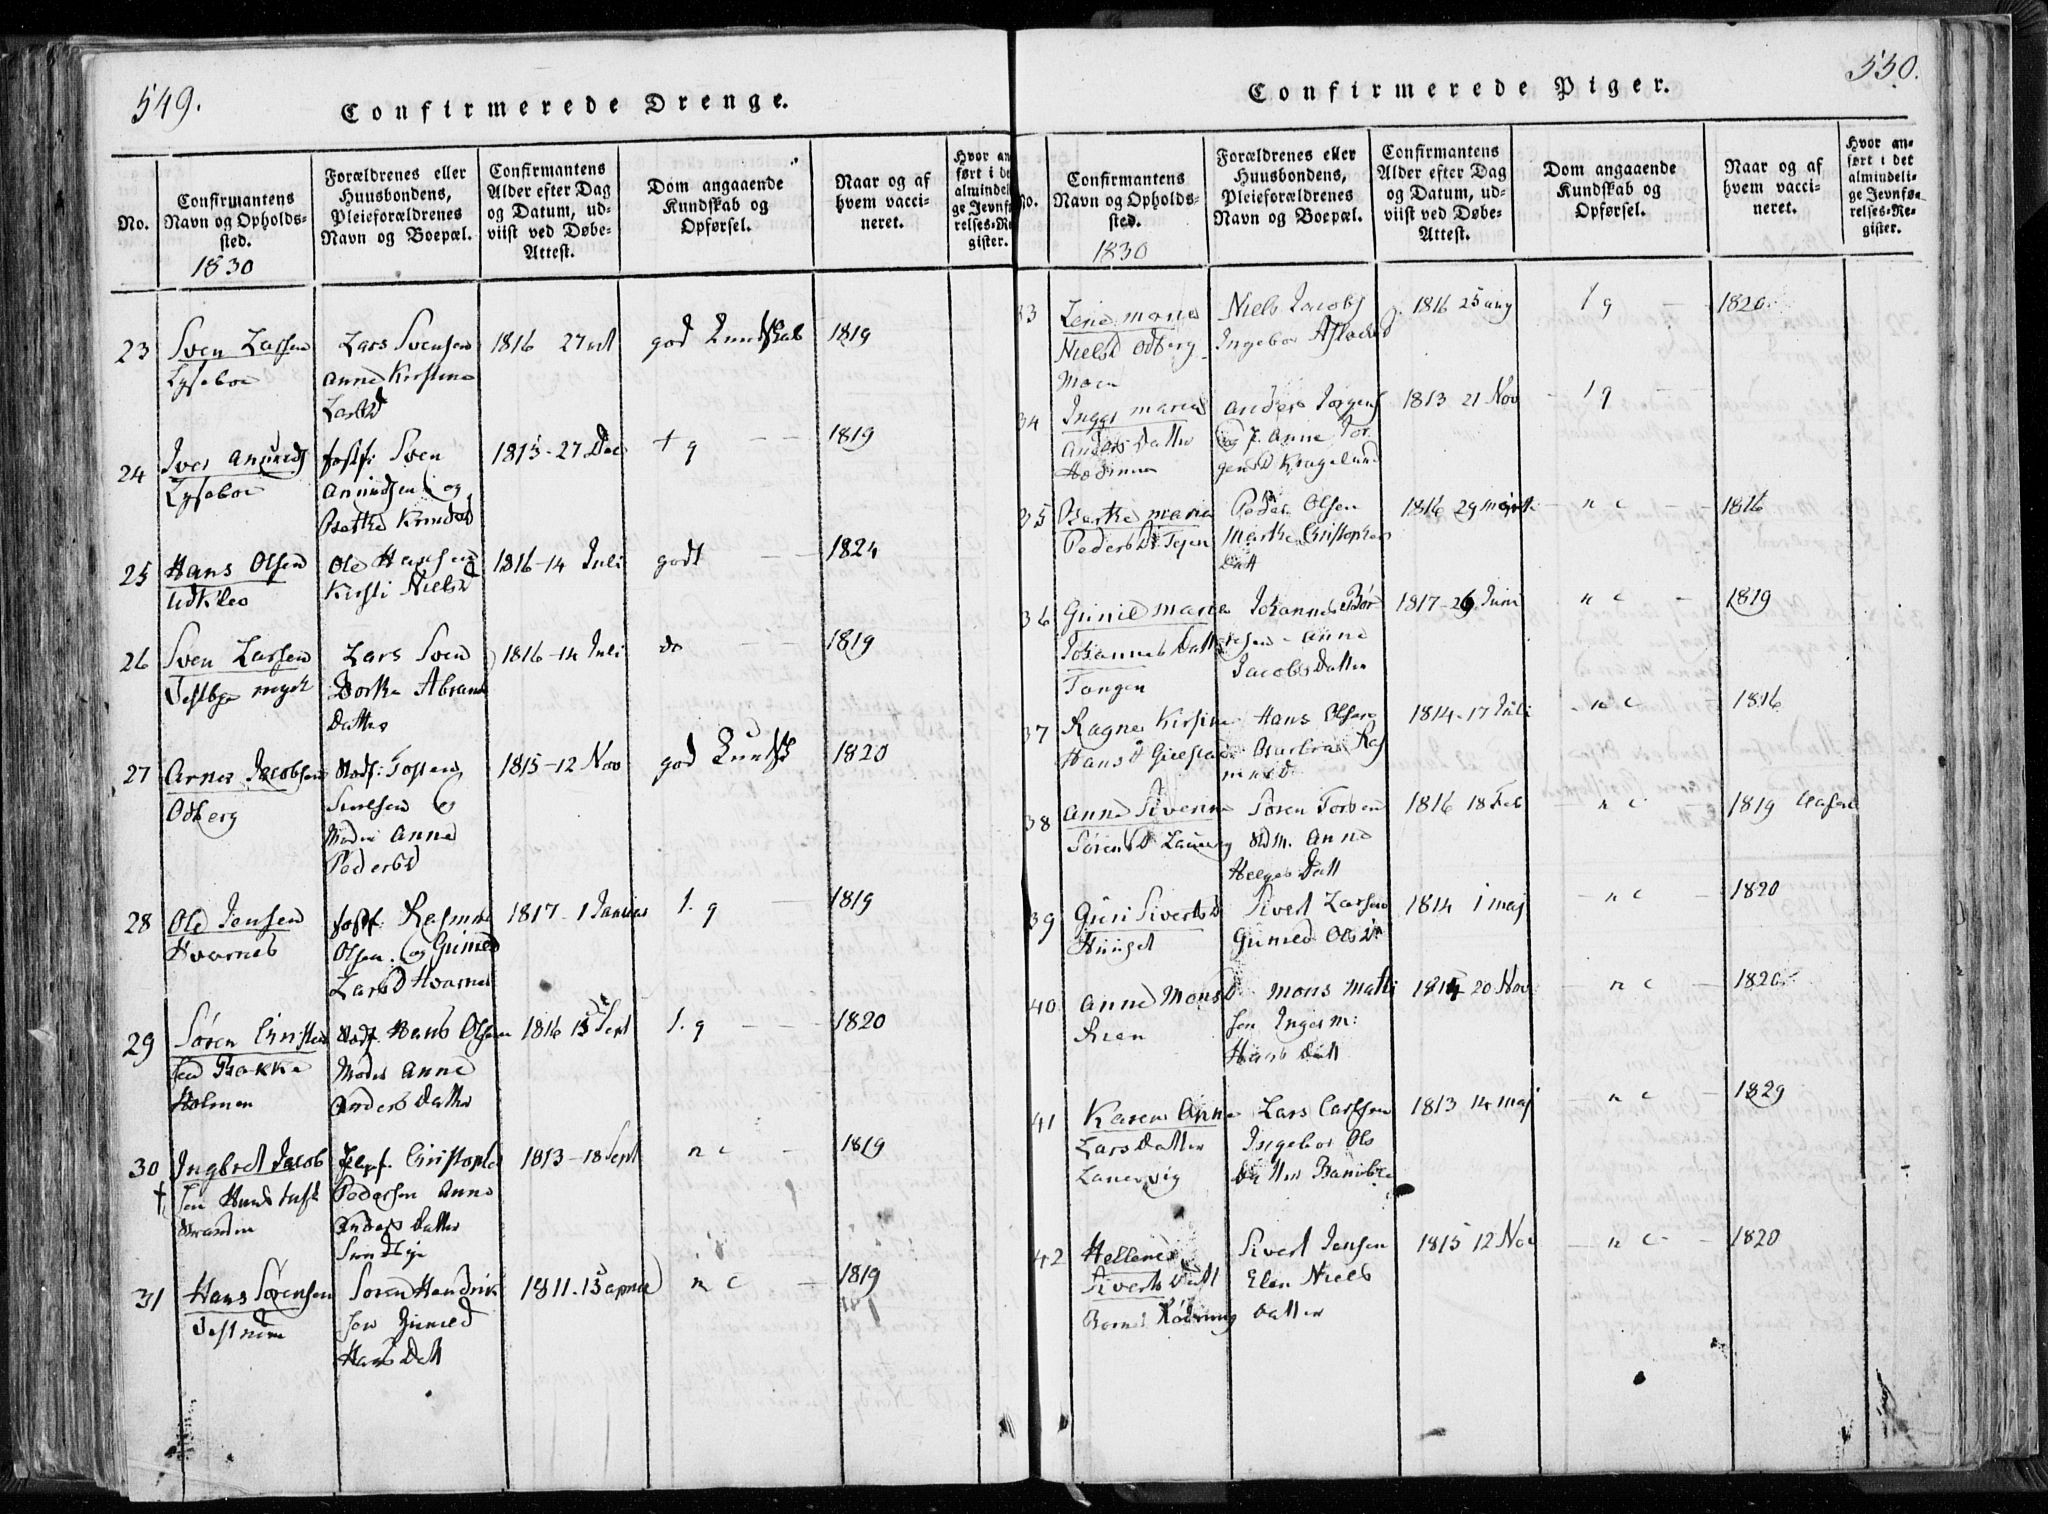 549.
Confirmerede Drenge.
No.
Confirmantens
Navn og Opholds-
sted.
1830
Forældrenes eller
Huusbondens,
Pleieforældrenes
Navn og Boepæl.
Confirmantens
Alder efter Dag
og Datum, ud-
viist ved Døbe-
Attest.
Dom angaaende
Kundskab og
Opførsel.
Naar og af
hvem vacci-
neret.
Hvor an-
ført i det
almindeli-
ge Jevnfø-
relses-Re-
gister.
23
Sven Larsen
Lyseboe
Lars Svensen
Anne Kirstine
Larsd
1816 27
god Kundskab
1819
24
Iver Amunds
Lyseboe
fostf: Sven
Amundsen og
Berthe Knudsd
1815-27 Dec
t g
1819
25
Hans Olsen
Udklev
Ole Hansen
Kirsti Nielsd
1816-14 Juli
godt
1824
26
Sven Larsen
Lars Sven
Dorthe Abrams
Datter
1816-14 Juli
do
1819
27
Arne Jacobsen
Odberg
Stedf: Gosten
og
Moder Anne
Pedersd
1815-12 Nov
god Kundsk
1820
28
Ole Jensen
Hvarnes
fostf. Rasmus
Olsen og Gunild
Larsd Hvarnes
1817-1 Januar
t. g
1819
29
Søren Christen
sen Bakke
Holmen
Stedf. Hans Olsen
Moder Anne
Anders Datter
1816 15 Sept
t. g
1820
30
Ingbret Jacob
sen
Stranden
Pleief. Christopher
Pedersen Anne
Anders Datter
1813-18 Sept
n c
1819
31
Hans Sørensen
Soren Hendrik
sen Gunild
Hans Datt
1811-15 april
n c
1819
550.
Confirmerede Piger.
No.
Confirmantens
Navn og Opholds-
sted.
1830
Forældrenes eller
Huusbondens,
Pleieforældrenes
Navn og Boepæl.
Confirmantens
Alder efter Dag
og Datum, ud-
viist ved Døbe-
Attest.
Dom angaaende
Kundskab og
Opførsel.
Naar og af
hvem vacci-
neret.
Hvor an-
ført i det
almindeli-
ge Jevnfø-
relses-Re-
gister.
33
Lene Marie
Nielsd Odberg
Moen
Niels Jacobs
Ingebor Aslaksd
1816 25 aug
t g
1820
34
Inger Marie
Anders Datter
Anders Jørgens
og Anne Jør
gensd Kragelund
1813 21 Nov
t g
35
Berthe Maria
Pedersd Tejen
Peder Olsen
Marthe Christophers
Datt
1816 29 marts
n c
1816
36
Gunild Marie
Johannes Datt
Tangen
Johannes Bør
resen Anne
Jacobs Datter
1817-26 Juni
n c
1819
37
Ragne Kirstine
Hansd Gulestad
Hans Olsen
Barbra Ras
musd
1814-17 Juli
n c
1816
38
Anne Siverine
Sørensd Lauervig
Søren Torsen
Stdm. Anne
Helges Datt
1816 18 Feb
n c
1819
39
Guri Sivertsd
Sivert Larsen
Gunild Olsd
1814 1 maj
n c
1820
40
Anne Monsd
Mons Matti
sen Inger M:
Hans Datt
1814 20 Nov
n c
1820
41
Karen Anne
Lars Datter
Lauervig
Lars Carlsen
Ingebor Ols
Datter
1813 14 maj
n c
1829
42
Hellene
Siverts Datt
Sivert Jensen
Elen Niels
Datter
1815 12 Nov
n c
1820